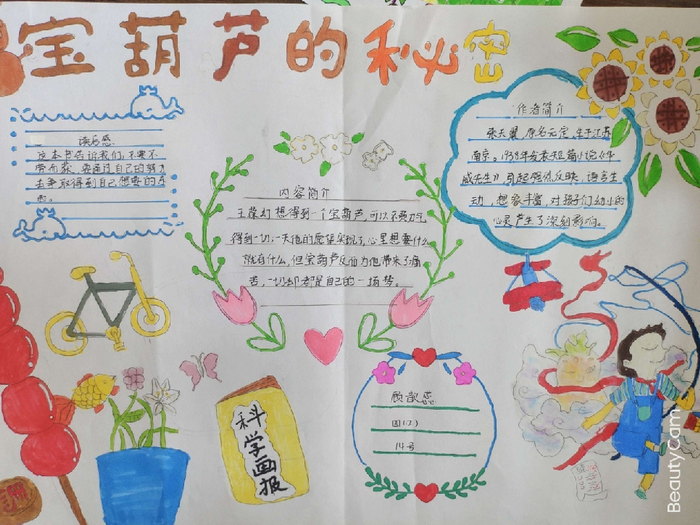 宝葫芦的秘密
读后感
这本书告诉我们:不要不
劳而获,要通过自己的努力
去争取得到自己想要的东
西。
内容简介
王葆幻想得到一个宝葫芦,可以不费力气
得到一切,一天他的愿望实现了,心里想要什么
就有什么,但宝葫芦反而为他带来了痛
苦,一切却都是自己的一场梦。
作者简介
张天翼,原名元定,生于江苏
南京。1938年发表短篇小说《华
威先生》引起强烈反映,语言生
动,想象丰富,对孩子们幼小的
心灵产生了深刻影响。
科学画报
顾歆蕊
14号
BeautyCam